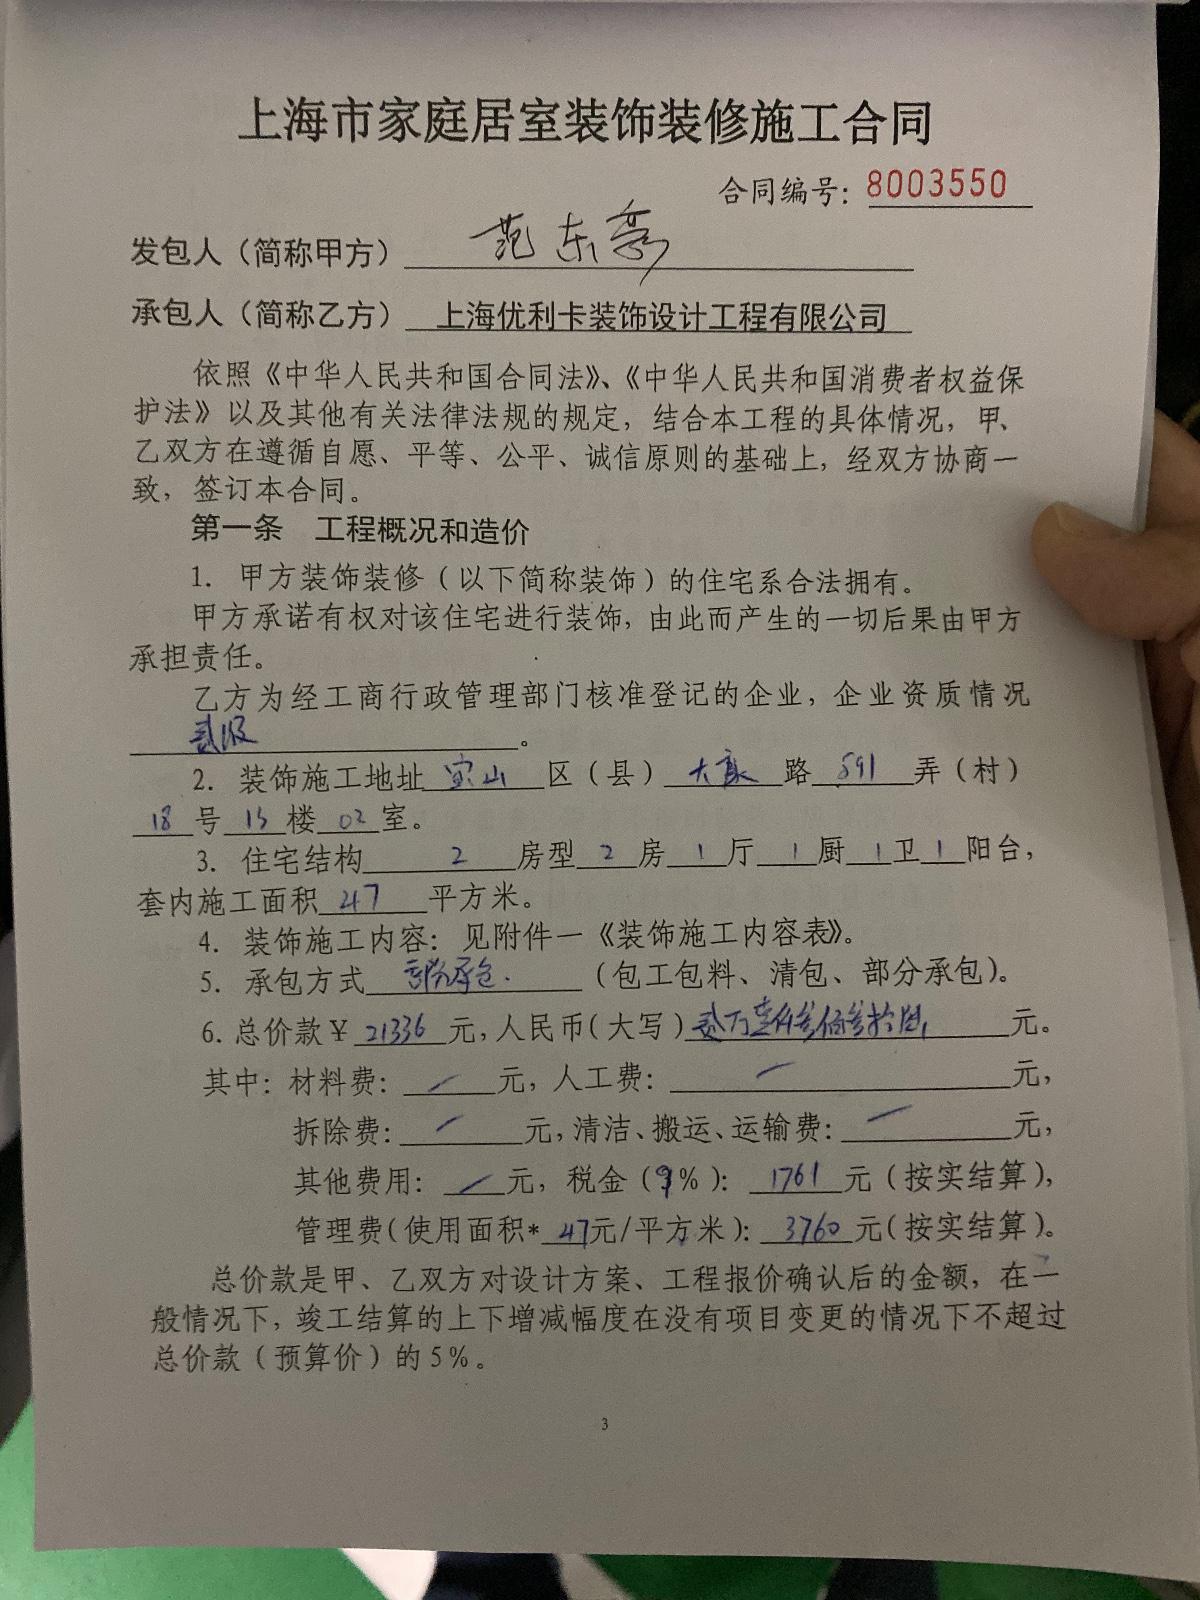 上海市家庭居室装饰装修施工合同
合同编号：8003550
发包人（简称甲方） 范东
承包人（简称乙方） 上海优利卡装饰设计工程有限公司
依照《中华人民共和国合同法》、《中华人民共和国消费者权益保
护法》以及其他有关法律法规的规定，结合本工程的具体情况，甲、
乙双方在遵循自愿、平等、公平、诚信原则的基础上，经双方协商一
致，签订本合同。
第一条 工程概况和造价
1. 甲方装饰装修（以下简称装饰）的住宅系合法拥有。
甲方承诺有权对该住宅进行装饰，由此而产生的一切后果由甲方
承担责任。
乙方为经工商行政管理部门核准登记的企业，企业资质情况
贰级。
2. 装饰施工地址 宝山 区（县） 大 路 591 弄（村）
18 号 楼 02 室。
3. 住宅结构 2 房型 2 房 1 厅 1 厨 1 卫 1 阳台，
套内施工面积 47 平方米。
4. 装饰施工内容：见附件一《装饰施工内容表》。
5. 承包方式 部分承包. （包工包料、清包、部分承包）。
6. 总价款￥ 21336 元，人民币（大写） 贰万壹仟叁佰叁拾陆 元。
其中：材料费： / 元，人工费： / 元，
拆除费： / 元，清洁、搬运、运输费： / 元，
其他费用： / 元，税金（9%）： 1761 元（按实结算），
管理费（使用面积* 47元/平方米）： 3760 元（按实结算）。
总价款是甲、乙双方对设计方案、工程报价确认后的金额，在一
般情况下，竣工结算的上下增减幅度在没有项目变更的情况下不超过
总价款（预算价）的5%。
3